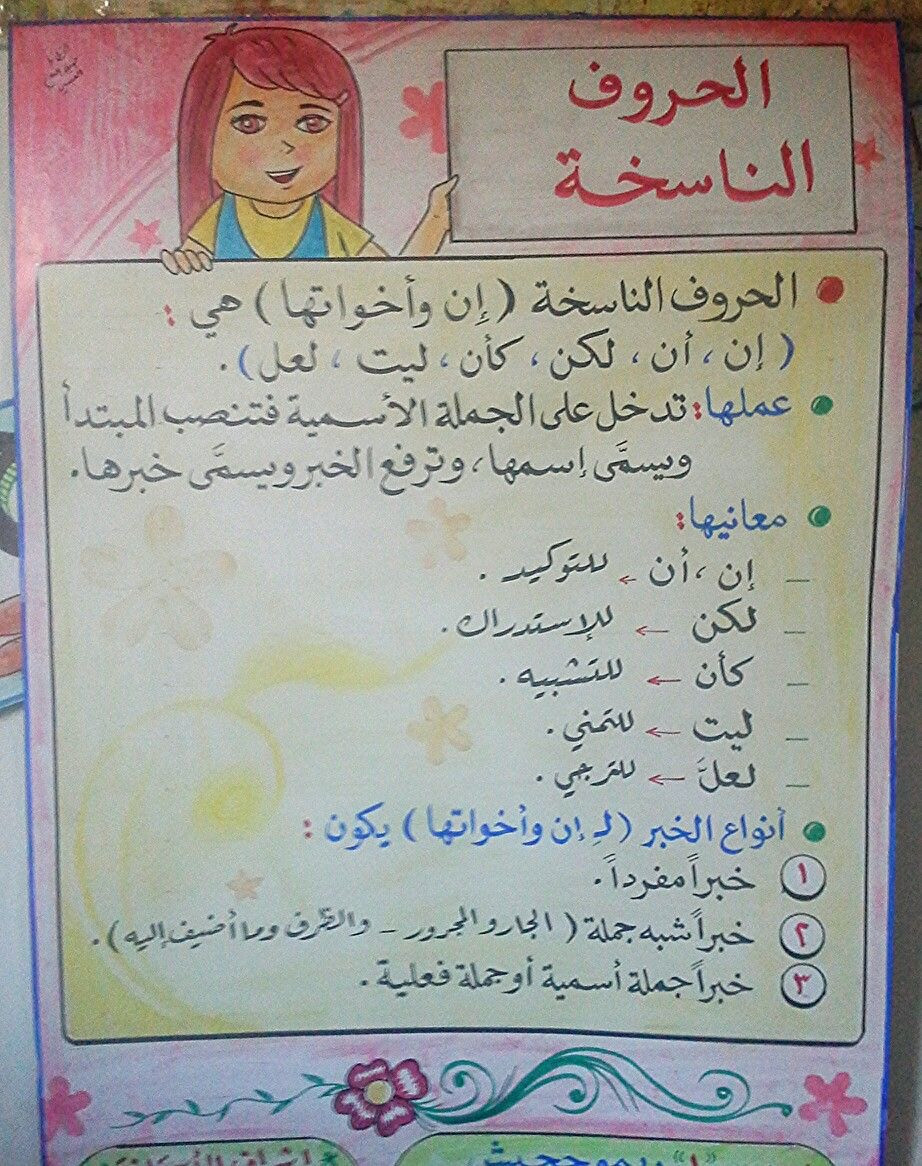 الحروف
الناسخة
الحروف الناسخة ( إن وأخواتها ) هي :
( إن ، أن ، لكن ، كأن ، ليت ، لعل ) .
عملها : تدخل على الجملة الأسمية فتنصب المبتدأ
ويسمَّى إسمها ، وترفع الخبر ويسمَّى خبرها .
معانيها :
_ إن ، أن ← للتوكيد .
_ لكن ← للإستدراك .
_ كأن ← للتشبيه .
_ ليت ← للتمني .
_ لعلَّ ← للترجي .
أنواع الخبر ( لـ إن وأخواتها ) يكون :
١ خبراً مفرداً .
٢ خبراً شبه جملة ( الجار والمجرور - والظرف وما أضيف إليه ) .
٣ خبراً جملة أسمية أو جملة فعلية .